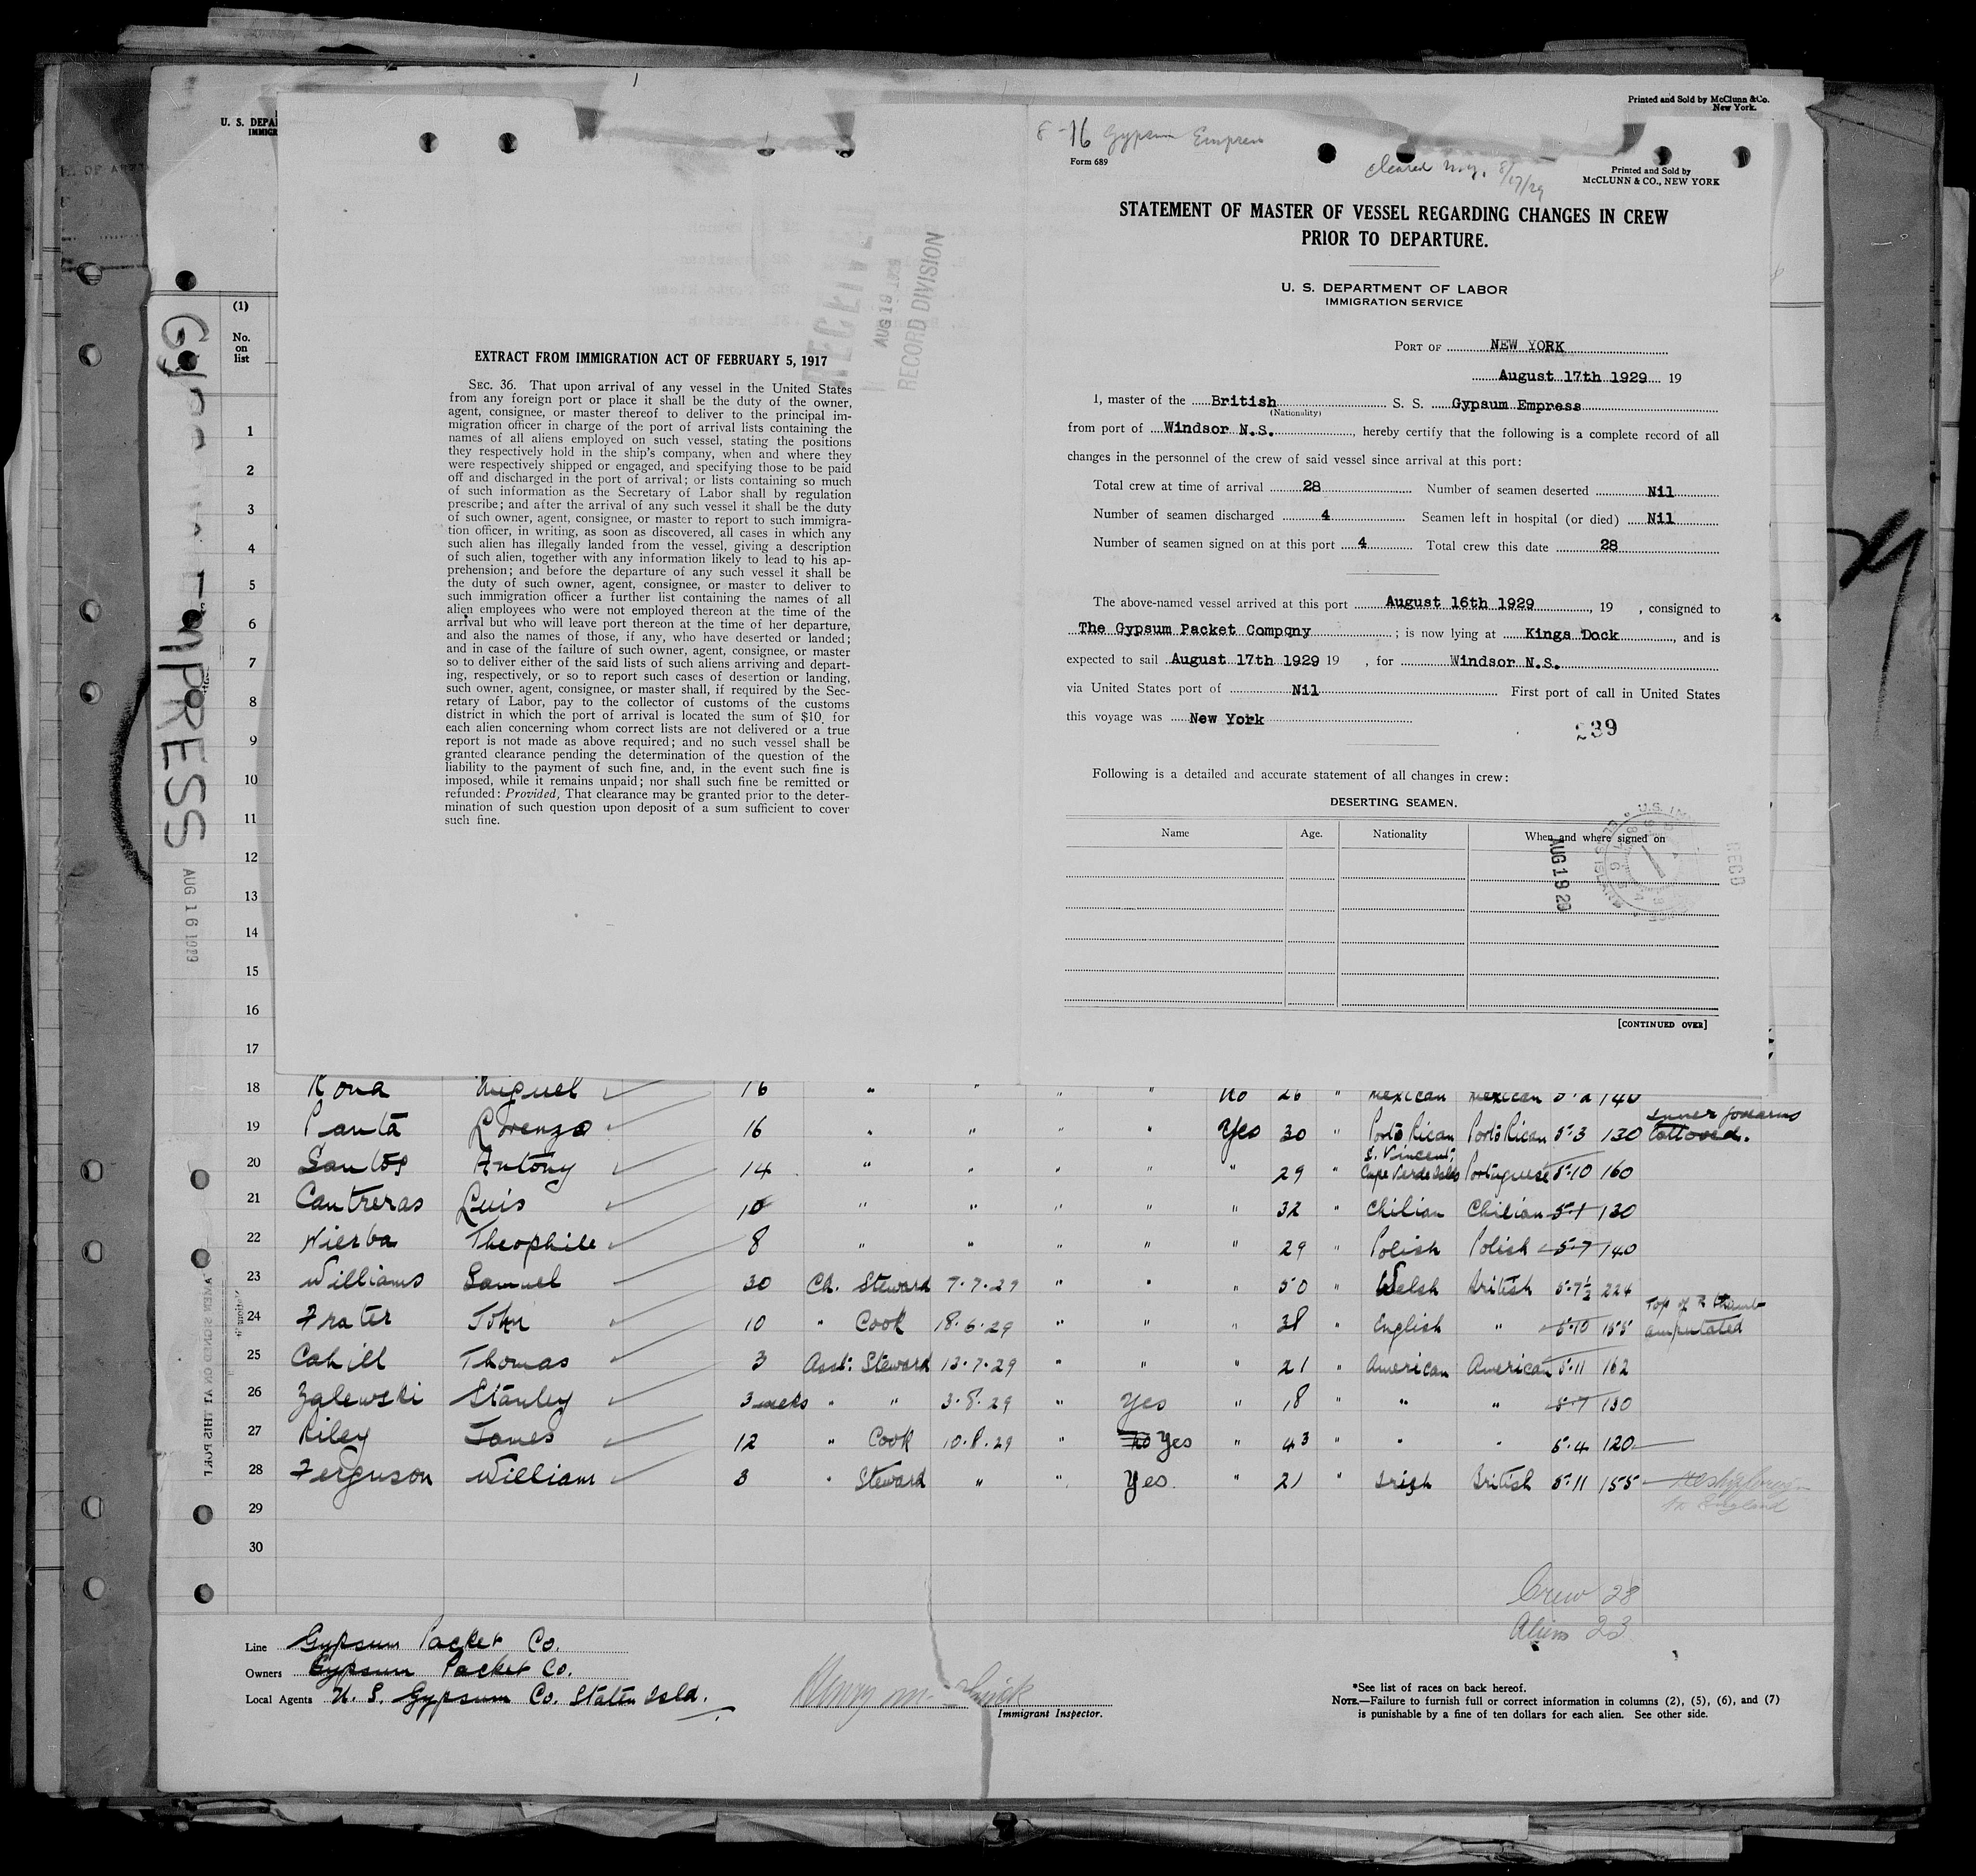 Printed and Sold by McClunn & Co.
New York.
U. S. DEPA
IMMIGR
8-16 Gypsum Empress
Form 689
cleared 8/17/29
Printed and Sold by
McCLUNN & CO., NEW YORK
STATEMENT OF MASTER OF VESSEL REGARDING CHANGES IN CREW
PRIOR TO DEPARTURE.
U. S. DEPARTMENT OF LABOR
IMMIGRATION SERVICE
PORT OF NEW YORK
August 17th 1929 19
I, master of the British S. S. Gypsum Empress
(Nationality)
from port of Windsor N.S., hereby certify that the following is a complete record of all
changes in the personnel of the crew of said vessel since arrival at this port:
Total crew at time of arrival 28 Number of seamen deserted Nil
Number of seamen discharged 4 Seamen left in hospital (or died) Nil
Number of seamen signed on at this port 4 Total crew this date 28
The above-named vessel arrived at this port August 16th 1929, 19 , consigned to
The Gypsum Packet Compqny ; is now lying at Kings Dock, and is
expected to sail August 17th 1929 19 , for Windsor N.S.
via United States port of Nil First port of call in United States
this voyage was New York
239
Following is a detailed and accurate statement of all changes in crew:
DESERTING SEAMEN.
Name Age. Nationality When and where signed on
AUG 19 29
RECD
[CONTINUED OVER]
RECEIVED
AUG 19 1929
RECORD DIVISION
EXTRACT FROM IMMIGRATION ACT OF FEBRUARY 5, 1917
SEC. 36. That upon arrival of any vessel in the United States
from any foreign port or place it shall be the duty of the owner,
agent, consignee, or master thereof to deliver to the principal im-
migration officer in charge of the port of arrival lists containing the
names of all aliens employed on such vessel, stating the positions
they respectively hold in the ship's company, when and where they
were respectively shipped or engaged, and specifying those to be paid
off and discharged in the port of arrival; or lists containing so much
of such information as the Secretary of Labor shall by regulation
prescribe; and after the arrival of any such vessel it shall be the duty
of such owner, agent, consignee, or master to report to such immigra-
tion officer, in writing, as soon as discovered, all cases in which any
such alien has illegally landed from the vessel, giving a description
of such alien, together with any information likely to lead to his ap-
prehension; and before the departure of any such vessel it shall be
the duty of such owner, agent, consignee, or master to deliver to
such immigration officer a further list containing the names of all
alien employees who were not employed thereon at the time of the
arrival but who will leave port thereon at the time of her departure,
and also the names of those, if any, who have deserted or landed;
and in case of the failure of such owner, agent, consignee, or master
so to deliver either of the said lists of such aliens arriving and depart-
ing, respectively, or so to report such cases of desertion or landing,
such owner, agent, consignee, or master shall, if required by the Sec-
retary of Labor, pay to the collector of customs of the customs
district in which the port of arrival is located the sum of $10. for
each alien concerning whom correct lists are not delivered or a true
report is not made as above required; and no such vessel shall be
granted clearance pending the determination of the question of the
liability to the payment of such fine, and, in the event such fine is
imposed, while it remains unpaid; nor shall such fine be remitted or
refunded: Provided, That clearance may be granted prior to the deter-
mination of such question upon deposit of a sum sufficient to cover
such fine.
EMPRESS
AUG 16 1929
(1)
No.
on
list
1
2
3
4
5
6
7
8
9
10
11
12
13
14
15
16
17
18 Rona Miguel 16 " " " " No 26 " Mexican Mexican 5-2 140
19 Panta Lorenzo 16 " " " " Yes 30 " Porto Rican Porto Rican 5-3 130 inner forearms tattooed.
20 Santos Antony 14 " " " " " 29 " S. Vincent, Cape Verde Isles Portuguese 5-10 160
21 Contreras Luis 10 " " " " " 32 " Chilian Chilian 5-1 130
22 Wierba Theophile 8 " " " " " 29 " Polish Polish 5-7 140
23 Williams Samuel 30 Ch. Steward 7-7-29 " " " 50 " Welsh British 5-7½ 224
24 Frater John 10 " Cook 18-6-29 " " " 38 " English " 5-10 155 Top of R thumb amputated
25 Cahill Thomas 3 Asst. Steward 13-7-29 " " " 21 " American American 5-11 162
26 Zalewski Stanley 3 weeks " " 3-8-29 " Yes " 18 " " " 5-7 130
27 Riley James 12 " Cook 10-8-29 " No Yes " 43 " " " 5-4 120
28 Ferguson William 3 " Steward " " Yes " 21 " Irish British 5-11 155 England
29
30
Crew 28
Aliens 23
Line Gypsum Packet Co.
Owners Gypsum Packet Co.
Local Agents U. S. Gypsum Co. Staten Isld.
Immigrant Inspector.
*See list of races on back hereof.
NOTE.—Failure to furnish full or correct information in columns (2), (5), (6), and (7)
is punishable by a fine of ten dollars for each alien. See other side.